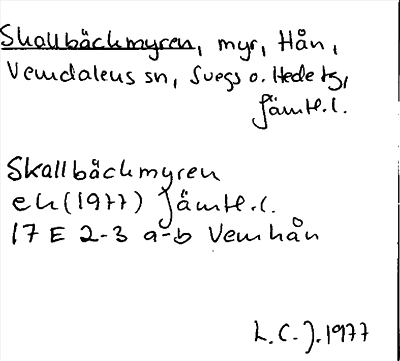 Skallbäckmyren, myr, Hån,
Vemdalens sn, Svegs o. Hede tg,
Jämtl.l.
Skallbäckmyren
ek (1977) Jämtl.l.
17 E 2-3 a-b Vemhån
L.C.J.1977